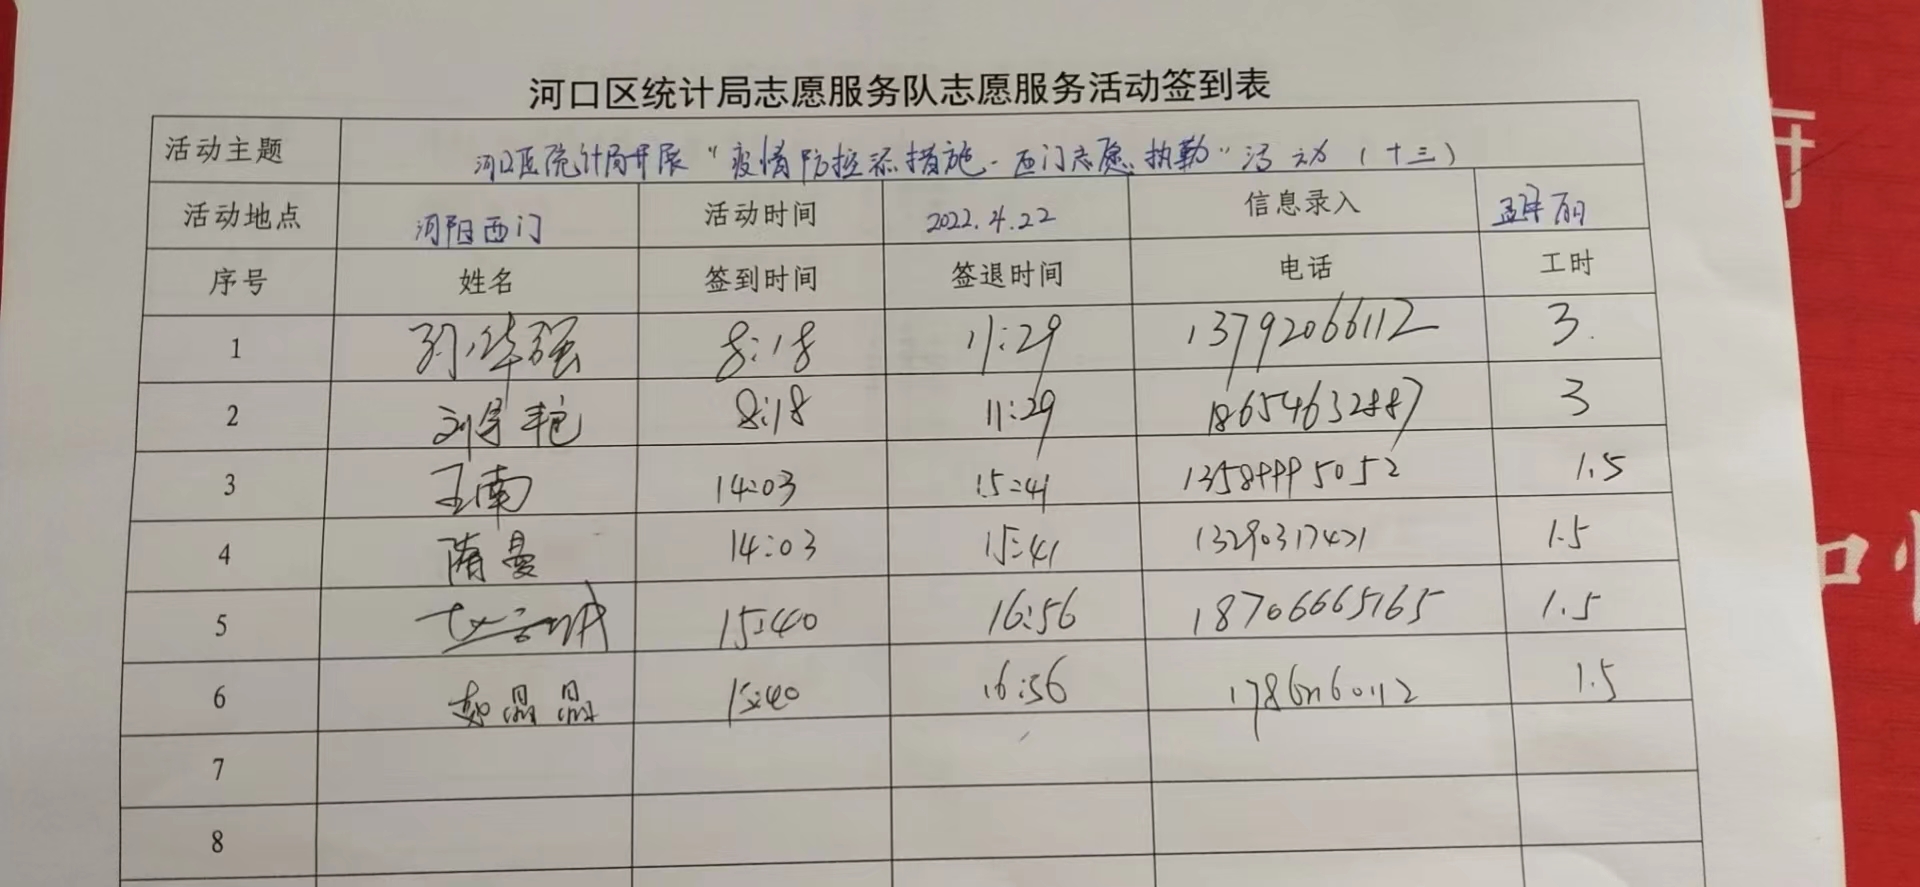 河口区统计局志愿服务队志愿服务活动签到表
活动主题 河口区统计局开展“疫情防控添措施-西门志愿执勤”活动（十三）
活动地点 河阳西门 活动时间 2022.4.22 信息录入 丽
序号 姓名 签到时间 签退时间 电话 工时
1 孙华强 8:18 11:29 13792066112 3
2 刘 艳 8:18 11:29 18654632887 3
3 王南 14:03 15:41 13589995052 1.5
4 隋曼 14:03 15:41 13290317421 1.5
5 15:40 16:56 18706665165 1.5
6 赵晶晶 15:40 16:56 1.5
7
8
府
和